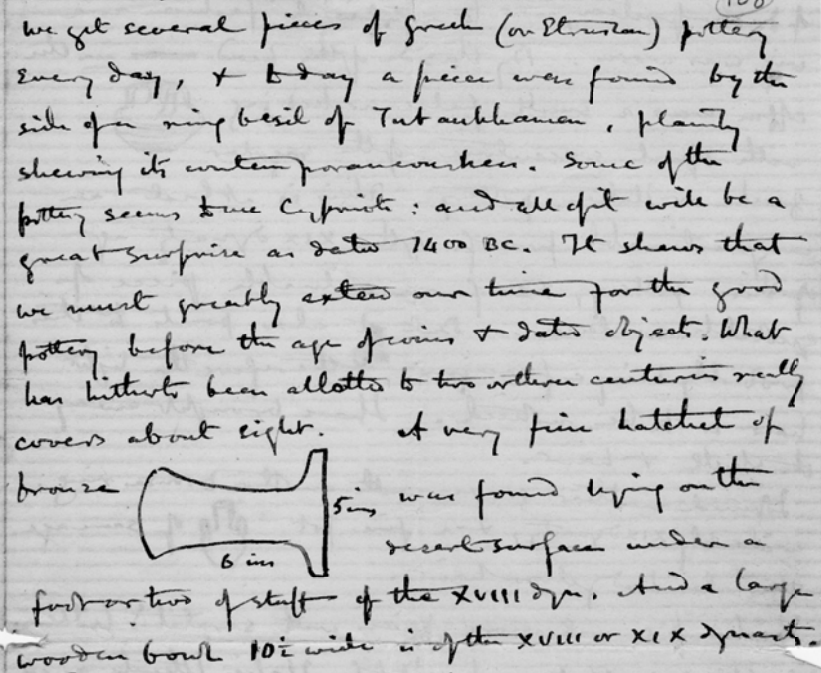 we get several pieces of Greek (or Etruscan) pottery
every day, & today a piece was found by the
side of a ring besil of Tutankhamen, plainly
shewing its contemporaneousness. Some of the
pottery seems to me Cypriote: and all of it will be a
great surprise as dated 1400 BC. It shews that
we must greatly extend our time for the good
pottery before the age of coins & dated objects. What
has hitherto been allotted to two or three centuries really
covers about eight. A very fine hatchet of
bronze
5 ins was found lying on the
6 ins desert surface under a
foot or two of stuff of the XVIII dyn. And a large
wooden bowl 10½ wide is of the XVIII or XIX dynasty.